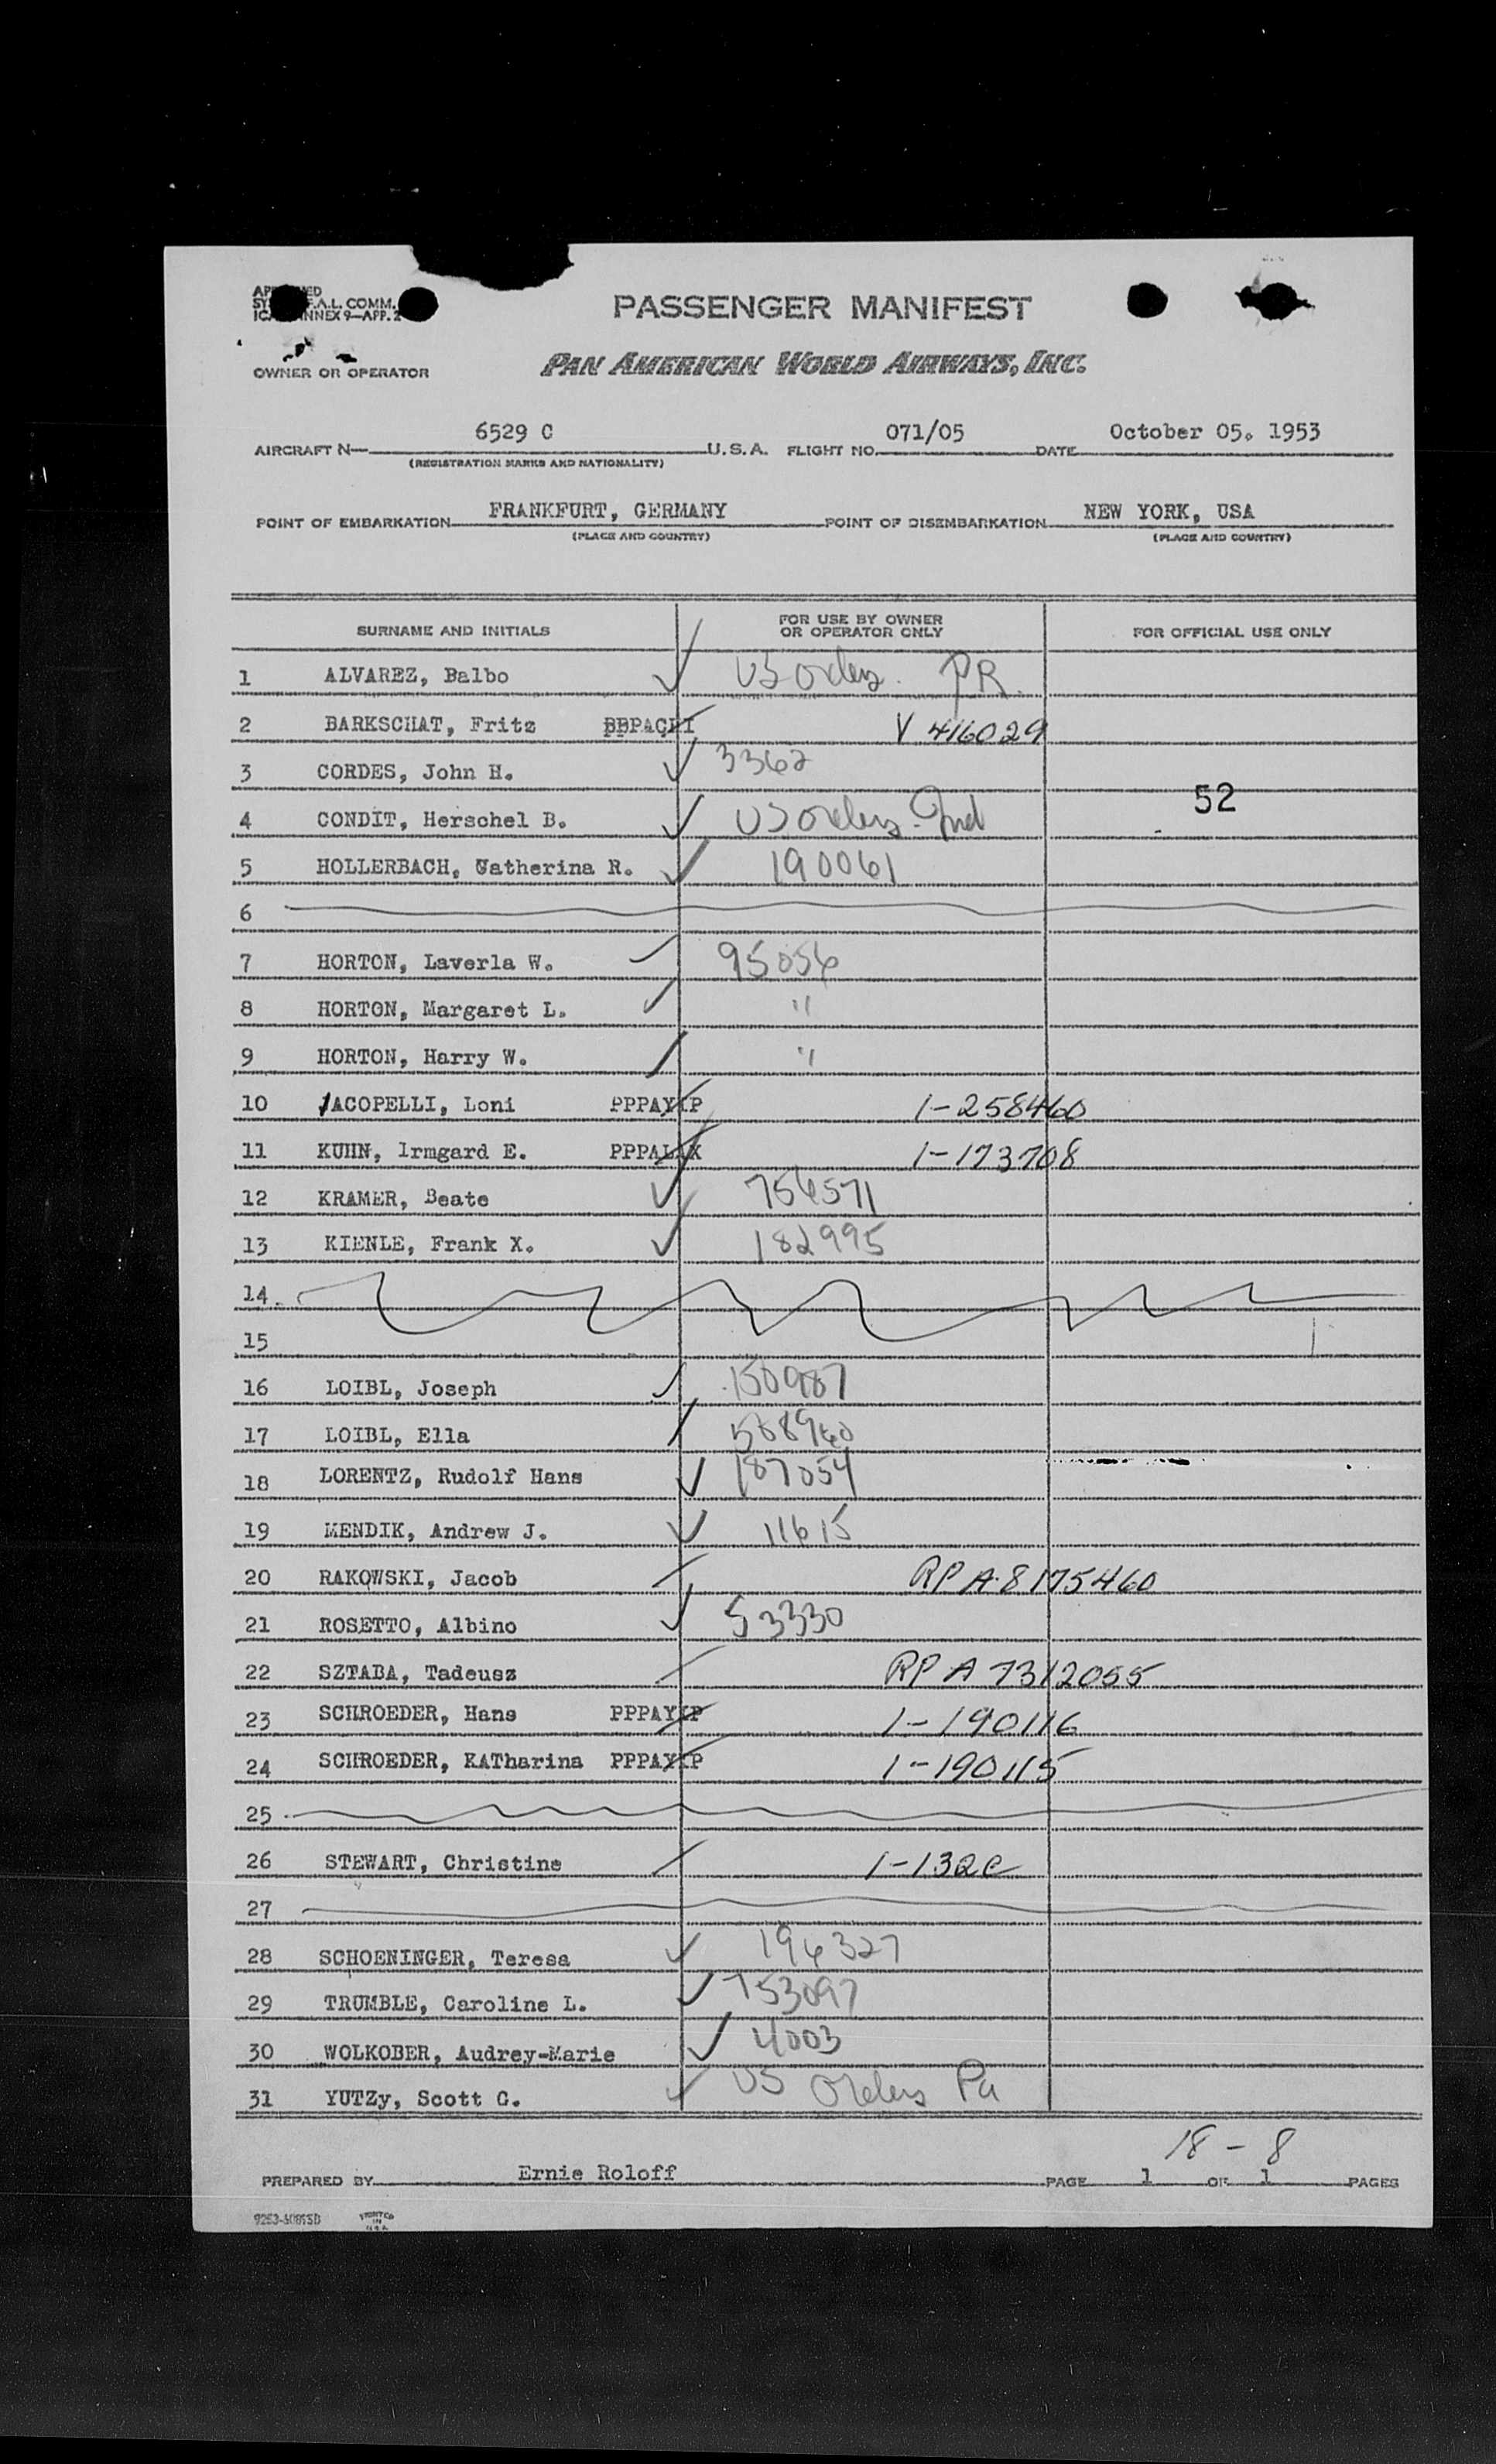 PASSENGER MANIFEST
F.A.L. COMM.
ANNEX 9—APP. 2
OWNER OR OPERATOR
PAN AMERICAN WORLD AIRWAYS, INC.
AIRCRAFT N— 6529 C U.S.A. FLIGHT NO. 071/05 DATE October 05. 1953
(REGISTRATION MARKS AND NATIONALITY)
POINT OF EMBARKATION FRANKFURT, GERMANY POINT OF DISEMBARKATION NEW YORK, USA
(PLACE AND COUNTRY) (PLACE AND COUNTRY)
SURNAME AND INITIALS FOR USE BY OWNER OR OPERATOR ONLY FOR OFFICIAL USE ONLY
1 ALVAREZ, Balbo US orders. PR.
2 BARKSCHAT, Fritz V 416029
3 CORDES, John H. 3362
52
4 CONDIT, Herschel B. US orders. Ind
5 HOLLERBACH, Catherina R. 190061
6
7 HORTON, Laverla W. 95056
8 HORTON, Margaret L. "
9 HORTON, Harry W. "
10 JACOPELLI, Loni PPPAYXP 1-258460
11 KUHN, Irmgard E. 1-173708
12 KRAMER, Beate 756571
13 KIENLE, Frank X. 182995
14
15
16 LOIBL, Joseph 150987
17 LOIBL, Ella 568960
18 LORENTZ, Rudolf Hans 187054
19 MENDIK, Andrew J. 11615
20 RAKOWSKI, Jacob RP A-8175460
21 ROSETTO, Albino 53330
22 SZTABA, Tadeusz RP A 7312055
23 SCHROEDER, Hans PPPAYXP 1-190116
24 SCHROEDER, KATharina PPPAYXP 1-190115
25
26 STEWART, Christine 1-132c
27
28 SCHOENINGER, Teresa 196327
29 TRUMBLE, Caroline L. 753097
30 WOLKOBER, Audrey-Marie 4003
31 YUTZy, Scott G. US Orders Pa
18 - 8
PREPARED BY Ernie Roloff PAGE 1 OF 1 PAGES
PRINTED IN U.S.A.